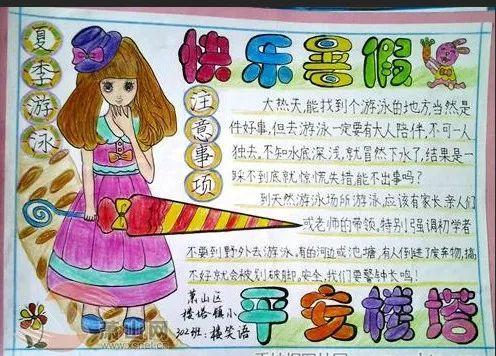 夏季游泳
快乐暑假
注意事项
大热天,能找到个游泳的地方,当然是
件好事,但去游泳一定要有大人陪伴,不可一人
独去。不知水底深浅,就冒然下水了,结果是一
踩不到底就惊慌失措,能不出事吗?
到天然游泳场所游泳,应该有家长,亲人们
或老师的带领,特别强调初学者
不要到野外去游泳。有的河边或池塘,有人倒进了废弃物,搞
不好就会被划破脚。安全,我们要警钟长鸣!
萧山区
楼塔镇小
302班:楼笑语
平安楼塔
www.xsnet.cn